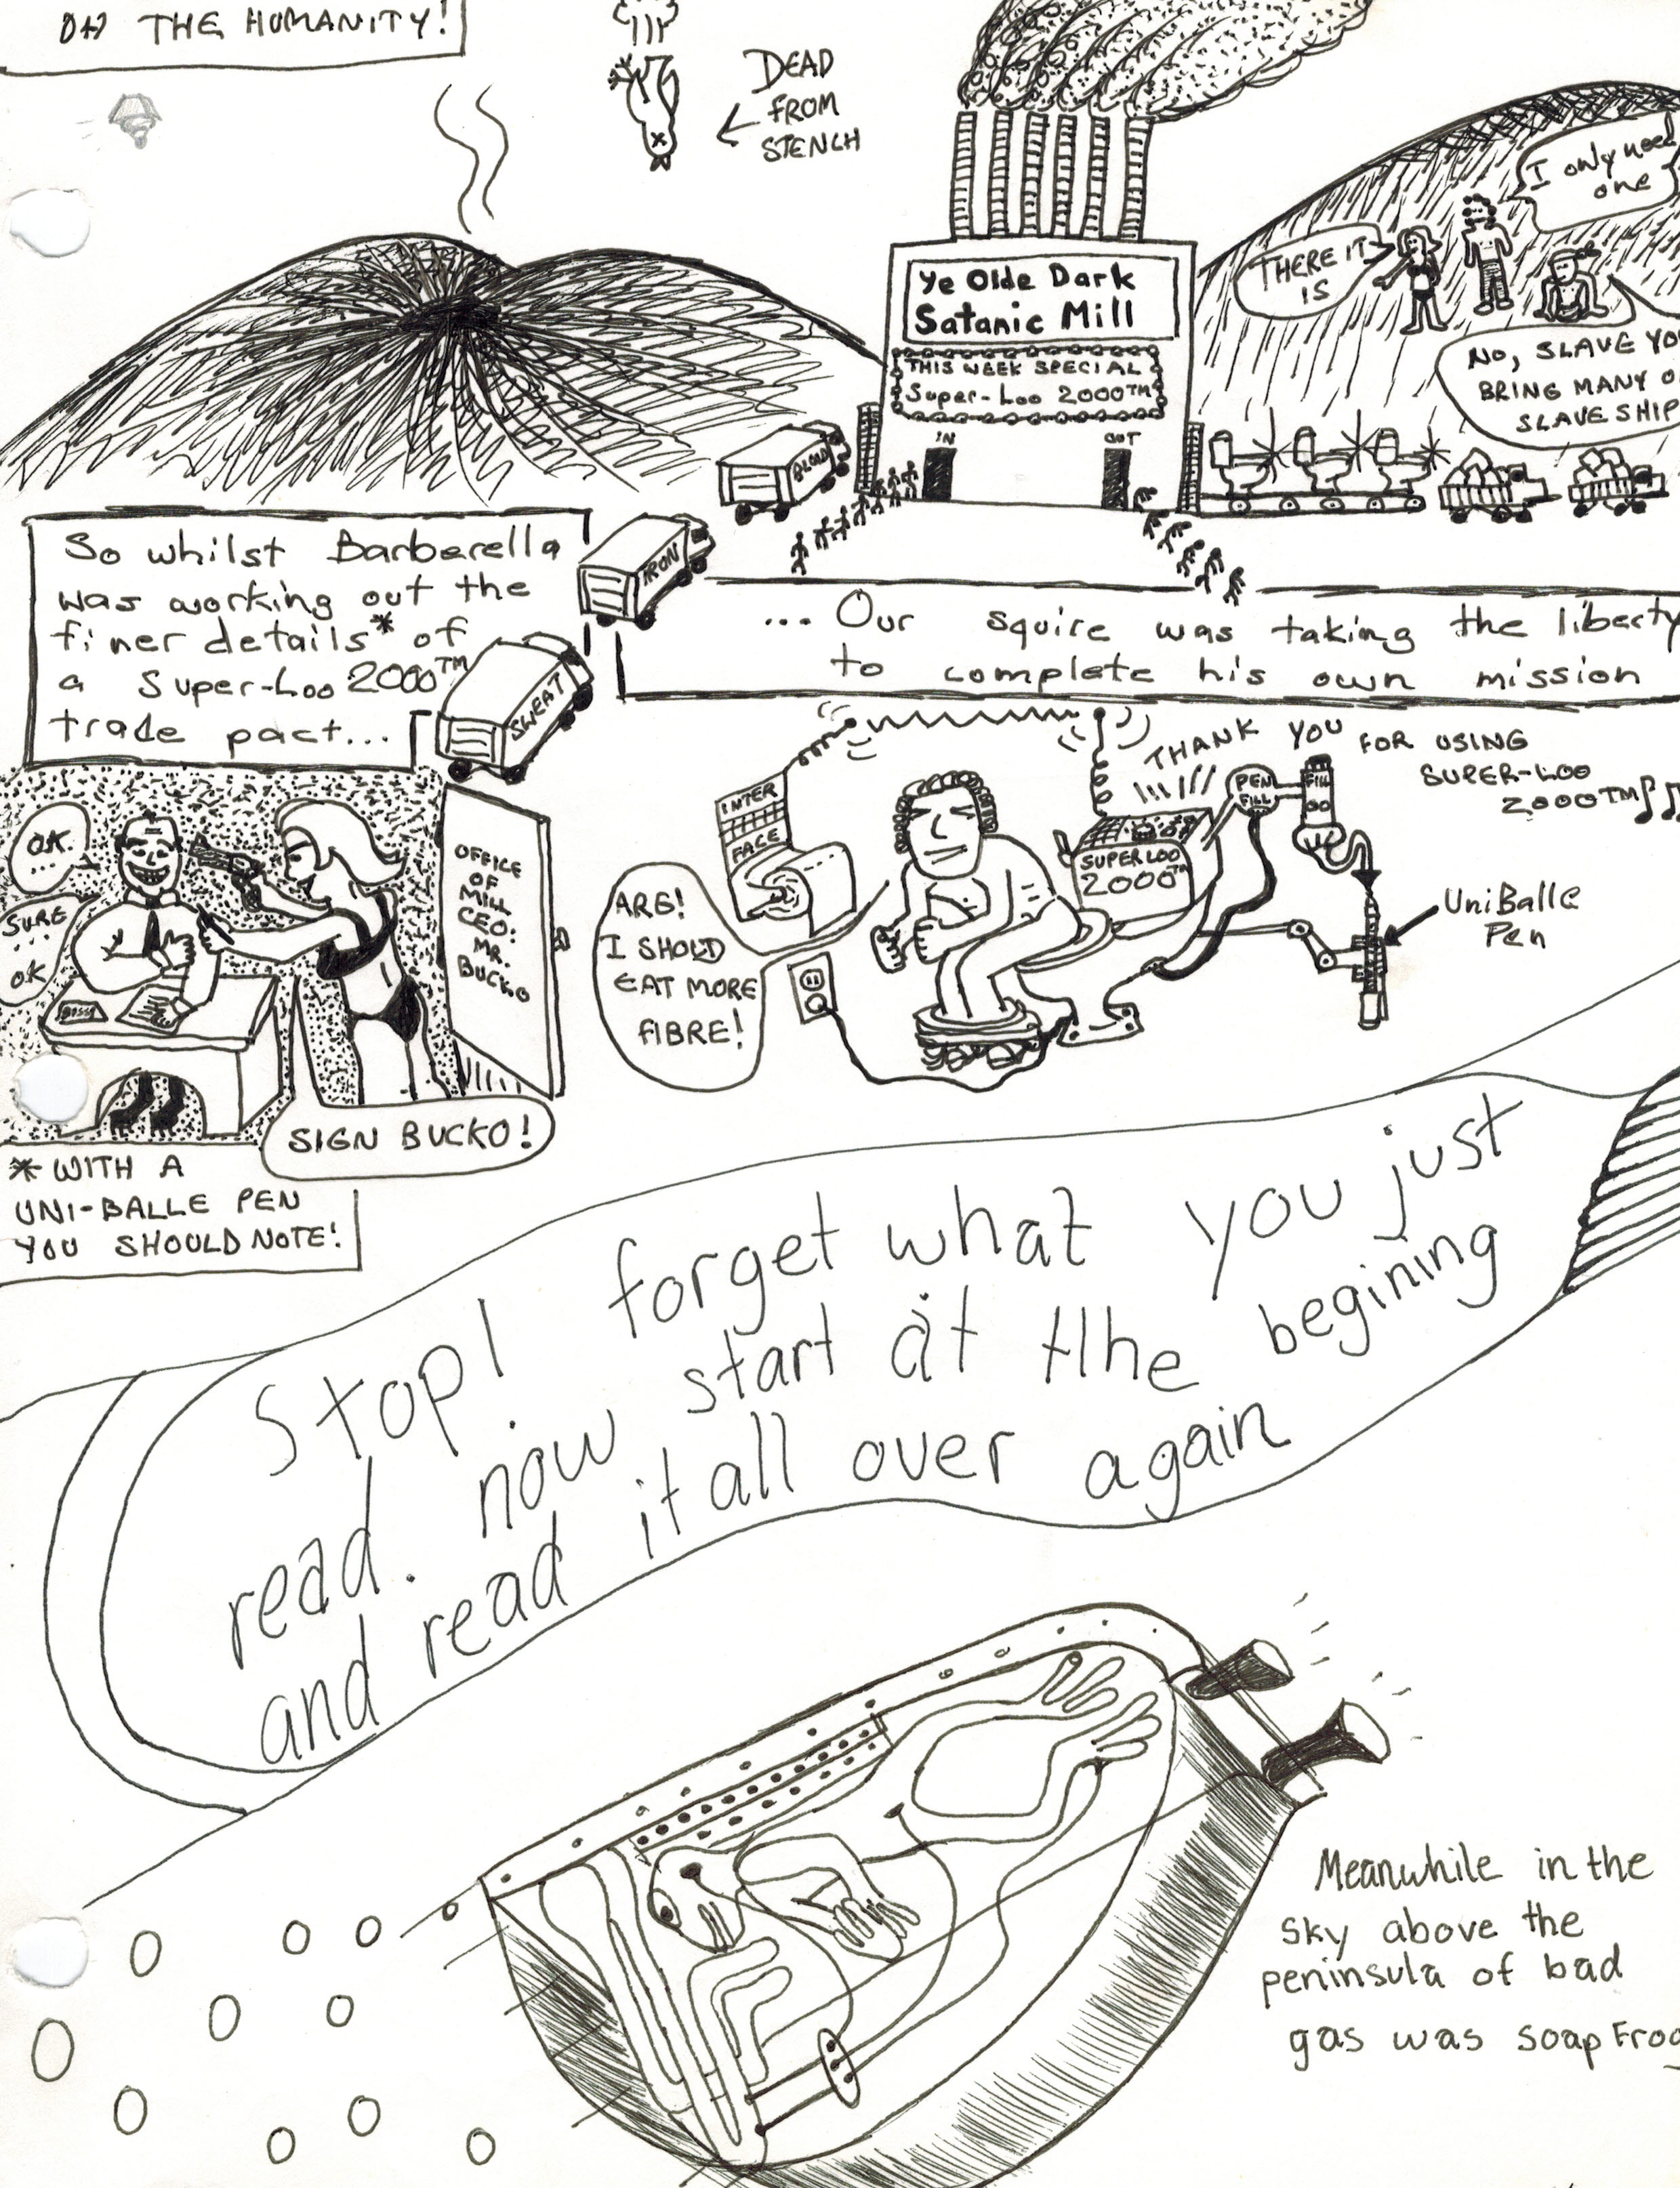 OH THE HUMANITY!
DEAD
FROM
STENCH
I only need
one
THERE IT
IS
NO, SLAVE
BRING MANY
SLAVE SHIP
Ye Olde Dark
Satanic Mill
THIS WEEK SPECIAL
Super-Loo 2000TM
IN
OUT
BLOOD
IRON
SWEAT
So whilst Barberella
was working out the
finer details* of
a Super-Loo 2000TM
trade pact...
... Our squire was taking the liberty
to complete his own mission
OK
...
SURE
OK
BOSS
OFFICE
OF
MILL
CEO:
MR.
BUCKO
SIGN BUCKO!
* WITH A
UNI-BALLE PEN
YOU SHOULD NOTE!
INTER
FACE
ARG!
I SHOULD
EAT MORE
FIBRE!
THANK YOU FOR USING
SUPER-LOO
2000TM
SUPER LOO
2000TM
PEN
FILL
FILL
UniBalle
Pen
Stop! forget what you just
read. now start at tlhe begining
and read it all over again
Meanwhile in the
sky above the
peninsula of bad
gas was soap Frog